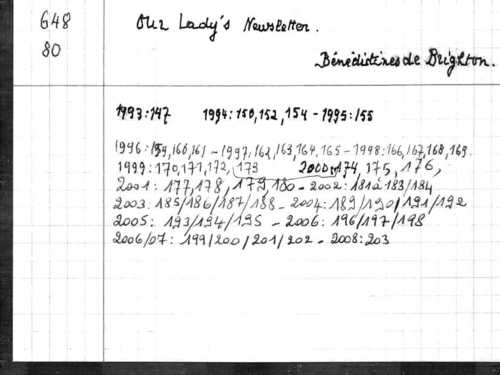 648 Our Lady's Newsletter.
80 Bénédictines de Brighton.
1993:147 1994:150,152,154 - 1995:155
1996:159,160,161 - 1997:162,163,164,165 - 1998:166,167,168,169.
1999:170,171,172,173 2000:174, 175, 176,
2001: 177,178, 179,180 - 2002: 181 à 183/184
2003: 185/186/187/188 - 2004: 189/190/191/192
2005: 193/194/195 - 2006: 196/197/198
2006/07: 199/200/201/202 - 2008:203